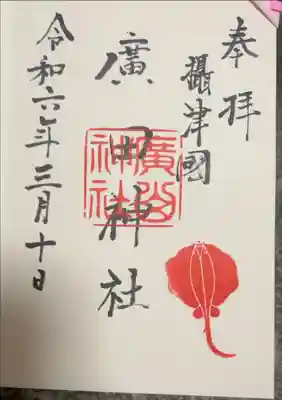 奉拝
攝津國
廣田神社
廣田神社
令和六年三月十日